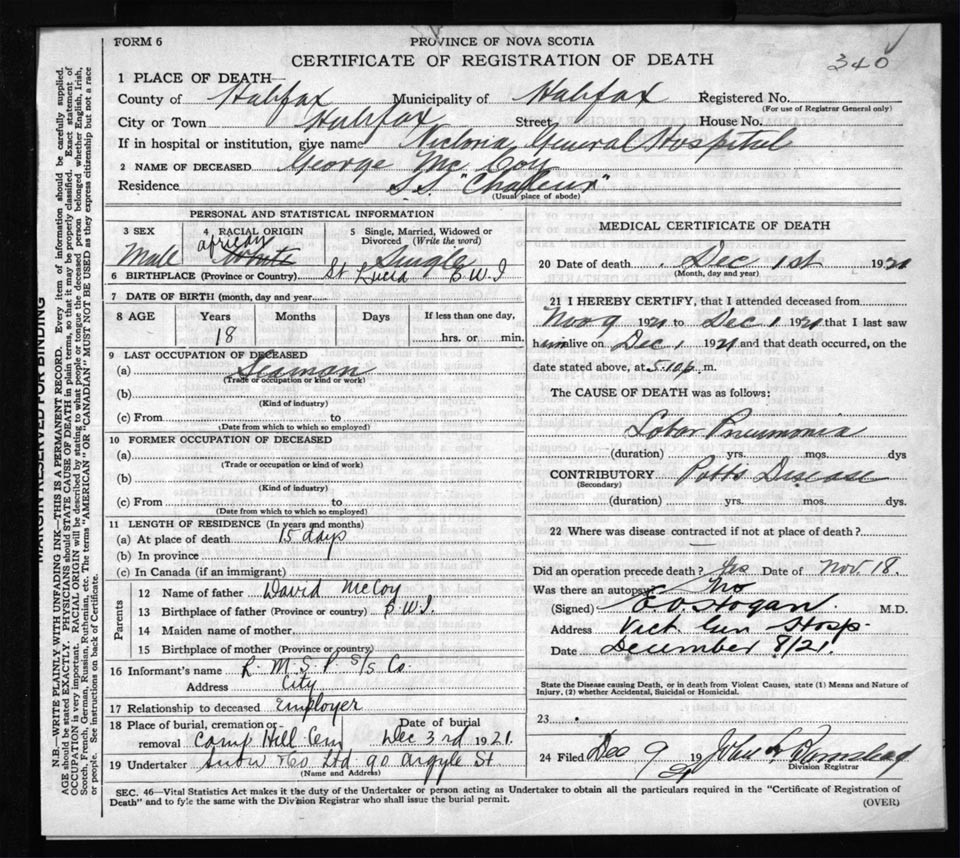 FORM 6
PROVINCE OF NOVA SCOTIA
CERTIFICATE OF REGISTRATION OF DEATH
340
1 PLACE OF DEATH—
County of Halifax Municipality of Halifax Registered No.
(For use of Registrar General only)
City or Town Halifax Street House No.
If in hospital or institution, give name Victoria General Hospital
2 NAME OF DECEASED George Mc Coy
Residence S.S. "Chaleur"
(Usual place of abode)
PERSONAL AND STATISTICAL INFORMATION
3 SEX 4 RACIAL ORIGIN 5 Single, Married, Widowed or Divorced (Write the word)
Male African White Single
6 BIRTHPLACE (Province or Country) St Lucia B.W.I
7 DATE OF BIRTH (month, day and year)
8 AGE Years Months Days If less than one day,
18 hrs. or min.
9 LAST OCCUPATION OF DECEASED
(a) Seaman
(Trade or occupation or kind or work)
(b)
(Kind of industry)
(c) From to
(Date from which to which so employed)
10 FORMER OCCUPATION OF DECEASED
(a)
(Trade or occupation or kind of work)
(b)
(Kind of industry)
(c) From to
(Date from which to which so employed)
11 LENGTH OF RESIDENCE (In years and months)
(a) At place of death 15 days
(b) In province
(c) In Canada (if an immigrant)
Parents
12 Name of father David McCoy
13 Birthplace of father (Province or country) B.W.I.
14 Maiden name of mother
15 Birthplace of mother (Province or country)
16 Informant's name R. M. S. P. S/S Co.
Address City
17 Relationship to deceased Employer
18 Place of burial, cremation or removal Camp Hill Cem Date of burial Dec 3rd 1921.
19 Undertaker Snow & Co Ltd 90 Argyle St
(Name and Address)
MEDICAL CERTIFICATE OF DEATH
20 Date of death Dec 1st 1921
(Month, day and year)
21 I HEREBY CERTIFY, that I attended deceased from
Nov 9 1921 to Dec 1 1921 that I last saw
him alive on Dec 1 1921 and that death occurred, on the
date stated above, at 5.10 p. m.
The CAUSE OF DEATH was as follows:
Lobar Pneumonia
(duration) yrs. mos. dys
CONTRIBUTORY Potts Disease
(Secondary)
(duration) yrs. mos. dys.
22 Where was disease contracted if not at place of death?
Did an operation precede death? Yes Date of Nov. 18.
Was there an autopsy? No
(Signed) E.V. Hogan. M.D.
Address Vict Gen Hosp.
Date December 8/21.
State the Disease causing Death, or in death from Violent Causes, state (1) Means and Nature of
Injury, (2) whether Accidental, Suicidal or Homicidal.
23
24 Filed Dec 9 19 21 John
Division Registrar
SEC. 46—Vital Statistics Act makes it the duty of the Undertaker or person acting as Undertaker to obtain all the particulars required in the "Certificate of Registration of
Death" and to fyle the same with the Division Registrar who shall issue the burial permit.
(OVER)
MARGIN RESERVED FOR BINDING
N.B.—WRITE PLAINLY WITH UNFADING INK—THIS IS A PERMANENT RECORD. Every item of information should be carefully supplied.
AGE should be stated EXACTLY. PHYSICIANS should STATE CAUSE OF DEATH in plain terms, so that it may be properly classified. Exact statement of
OCCUPATION is very important. RACIAL ORIGIN will be described by stating to what people or tongue the deceased person belonged whether English, Irish,
Scotch, French, German, Russian, Ruthenian, etc. The terms "AMERICAN" OR "CANADIAN" MUST NOT BE USED as they express citizenship but not a race
or people. See instructions on back of Certificate.